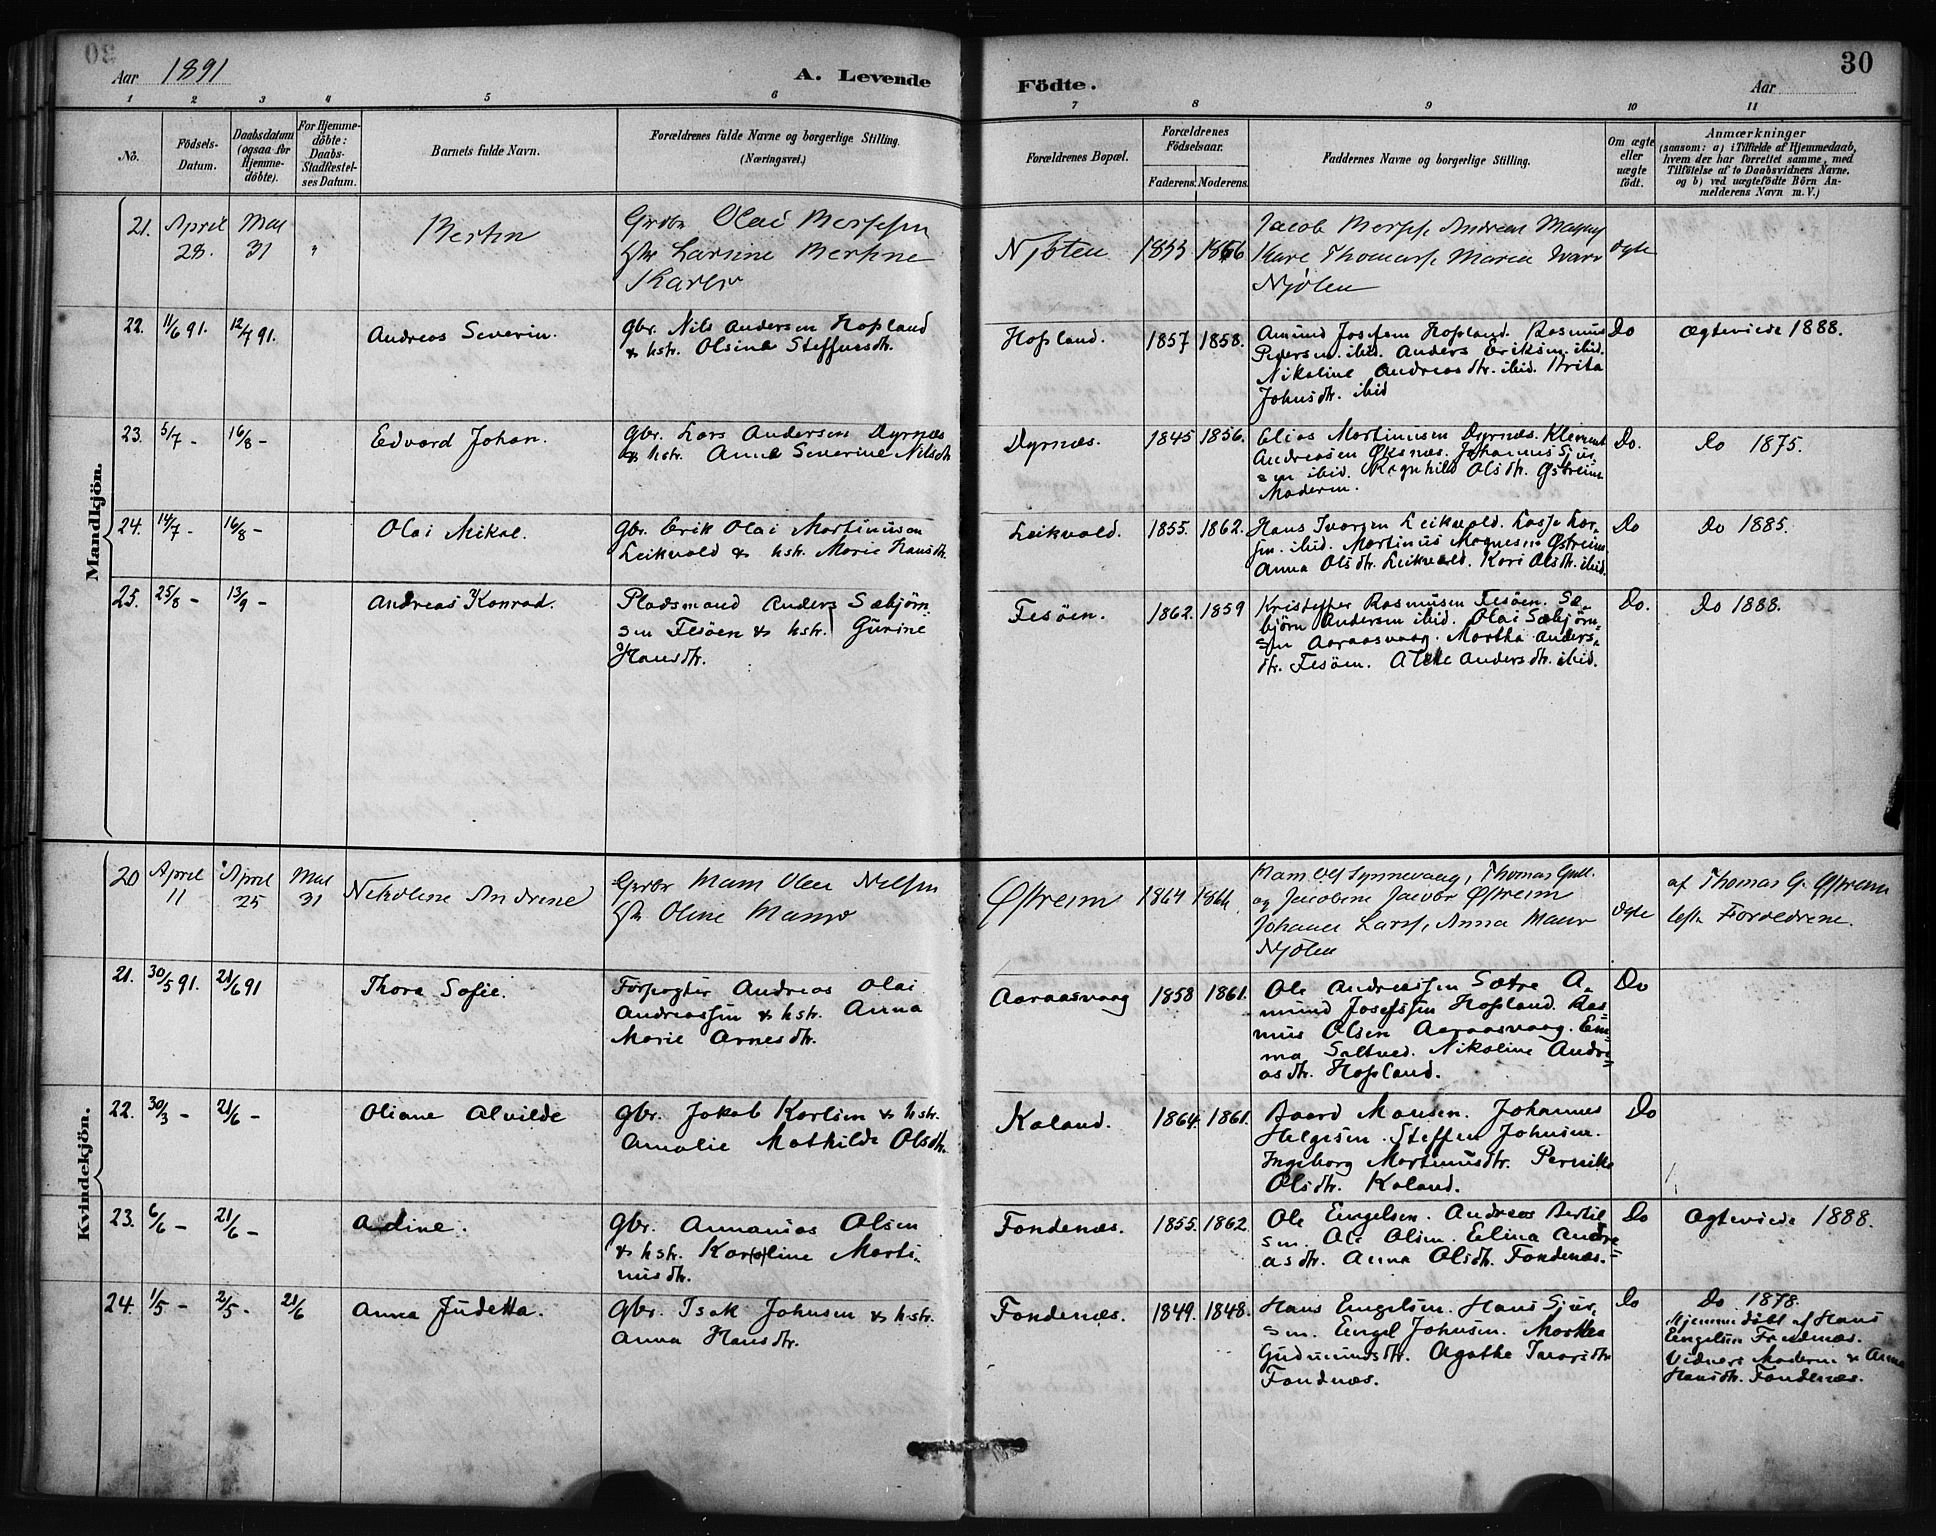 30
Aar 1891
A. Levende
Födte.
Aar
30
1 2 3 4 5 6 7 8 9 10 11
No.
Födsels-
Datum.
Daabsdatum
(ogsaa for
Hjemme-
döbte).
For Hjemme-
döbte:
Daabs-
Stadfæstel-
ses Datum.
Barnets fulde Navn.
Forældrenes fulde Navne og borgerlige Stilling.
(Næringsvei.)
Forældrenes Bopæl.
Forældrenes
Födselsaar.
Faderens. Moderens.
Faddernes Navne og borgerlige Stilling.
Om ægte
eller
uægte
födt.
Anmærkninger
(saasom: a) i Tilfælde af Hjemmedaab,
hvem der har forrettet samme, med
Tilföielse af to Daabsvidners Navne.
og b) ved uægtefödte Börn An-
melderens Navn m. V.)
Mandkjön.
21. April 28. Mai 31 " Bertin
Grdbr Olai
Larsine
Njöten 1853 1866
Jacob Andreas
Maria
Njölen
ægte
22. 11/6 91. 12/7 91. Andreas Severin.
gbr. Nils Andersen Hopland
& hstr. Olsine Steffensdtr.
Hopland. 1857 1858.
Amund Josefsen Hopland. Rasmus
Pedersen. ibid. Anders Eriksen. ibid.
Nikoline Andreasdtr. ibid. Brita
Johnsdtr. ibid
Do Ægteviede 1888.
23. 5/7 - 16/8 - Edvard Johan.
gbr. Lars Andersen Dyrnæs
& hstr. Anne Severine Nilsdtr
Dyrnæs. 1845 1856.
Elias Martinusen Dyrnæs. Klement
Andreasen Øksnæs. Johannes Sjur-
sen ibid. Ragnhild Olsdtr. Østreim
Moderen.
Do. Do 1875.
24. 14/7 - 16/8 - Olai Mikal.
gbr. Erik Olai Martinusen
Leikvold & hstr. Marie Hansdtr.
Leikvold. 1855. 1862.
Hans Ivarsen Leikvold. Lasse Lar-
sen. ibid. Martinus Magnesen Østreim
Anna Olsdtr. Leikvold. Kari Olsdtr. ibid.
Do Do 1885.
25. 25/8 - 13/9 - Andreas Konrad.
Pladsmand Anders Sæbjørn-
sen Fesöen & hstr. Gurine
Hansdtr.
Fesöen. 1862. 1859
Kristoffer Rasmusen Fesöen. Sæ-
björn Andersen ibid. Olai Sæbjörn-
sen Aaraasvaag. Martha Anders-
dtr. Fesöen. Andersdtr. ibid.
Do. Do 1888.
Kvindekjön.
20 April 11 April 25 Mai 31 Nikoline Andrine
Grdbr Mam Olai Nilssen
Oline
Østreim 1864 1866
Synnevaag, Thomas Gull.
og Jacobine Østreim
Johanne Larss, Anna
Njölen
ægte
af Thomas G. Østreim
Forældrene.
21. 30/5 91. 21/6 91 Thora Sofie.
Forpagter Andreas Olai
Andreassen & hstr. Anna
Marie Arnesdtr.
Aaraasvaag 1858 1861.
Ole Andreassen Sætre A-
mund Josefssen Hopland. Ras-
mus Olsen Aaraasvaag. Em-
ma Saltved. Nikoline Andre-
asdtr. Hopland.
Do
22. 30/3 - 21/6 - Oliane Alvilde
gbr. Jakob Karlsen & hstr.
Amalie Mathilde Olsdtr.
Kaland. 1864. 1861.
Baard Monsen. Johannes
Helgesen. Steffen Johnsen.
Ingeborg Martinusdtr. Pernike
Olsdtr. Kaland.
Do
23. 6/6 - 21/6 - Andine.
gbr. Annanias Olsen
& hstr. Karoline Marti-
nusdtr.
Fondenæs. 1855. 1862.
Ole Engelsen. Andreas Bertil-
sen. Ole Olsen. Elina Andre-
asdtr. Anna Olsdtr. Fondenæs.
Do Ægteviede 1888.
24. 1/5 - 2/5 - 21/6 Anna Judetta.
gbr. Isak Johnsen & hstr.
Anna Hansdtr.
Fondenæs. 1849. 1848.
Hans Engelsen. Hans Sjur-
sen. Engel Johnsen. Martha
Gudmundsdtr. Agathe Ivarsdtr
Fondnæs.
Do
Do 1878.
Hjemmedöbt af Hans
Engelsen Fondenæs.
Vidner: Moderen & Anna
Hansdtr. Fondenæs.